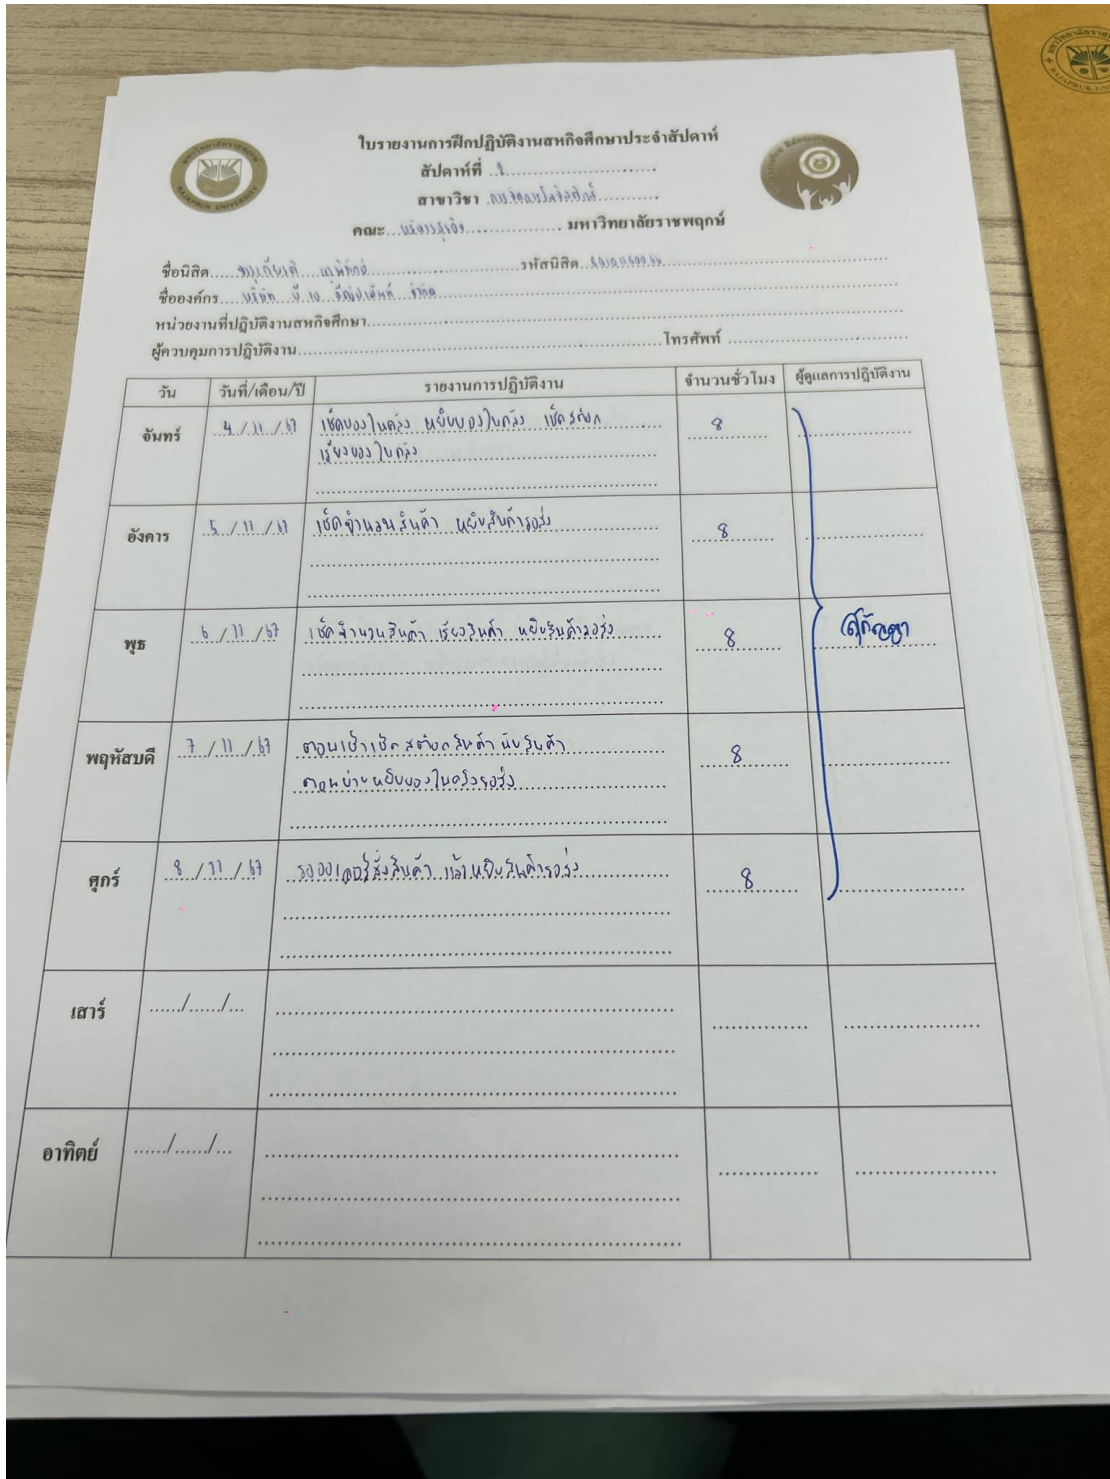 ใบรายงานการฝึกปฏิบัติงานสหกิจศึกษาประจำสัปดาห์
สัปดาห์ที่ ..2..........................
สาขาวิชา .การจัดการโลจิสติกส์............
คณะ...บริหารธุรกิจ.................. มหาวิทยาลัยราชพฤกษ์
ชื่อนิสิต..... รหัสนิสิต.....
ชื่อองค์กร.... บริษัท ที. จำกัด
หน่วยงานที่ปฏิบัติงานสหกิจศึกษา.....
ผู้ควบคุมการปฏิบัติงาน..... โทรศัพท์ .....
วัน วันที่/เดือน/ปี รายงานการปฏิบัติงาน จำนวนชั่วโมง ผู้ดูแลการปฏิบัติงาน
จันทร์ 4 / 11 / 67 เช็คของในคลัง หยิบของในคลัง เช็คสต๊อก 8
เรียงของในคลัง
อังคาร 5 / 11 / 67 เช็คจำนวนสินค้า หยิบสินค้ารอส่ง 8
พุธ 6 / 11 / 67 เช็คจำนวนสินค้า เรียงสินค้า หยิบสินค้ารอส่ง 8 สุกัญญา
พฤหัสบดี 7 / 11 / 67 ตอนเช้าเช็คสต๊อกสินค้า นับสินค้า 8
ตอนบ่ายหยิบของในคลังรอส่ง
ศุกร์ 8 / 11 / 67 รอออเดอร์สั่งสินค้า แล้วหยิบสินค้ารอส่ง 8
เสาร์ ....../....../...
อาทิตย์ ....../....../...